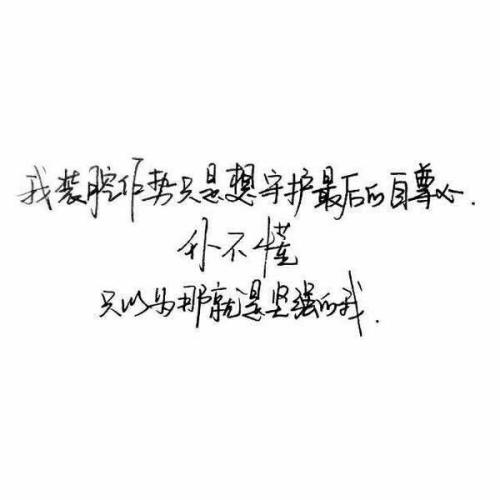 我装腔作势只是想守护最后的自尊心.
你不懂
只以为那就是坚强的我.